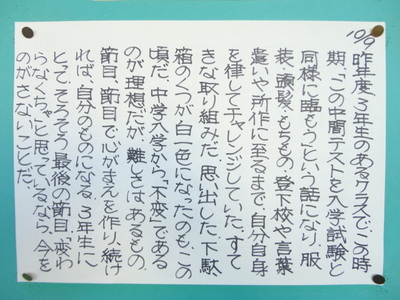 10/9 昨年度、3年生のあるクラスで、この時
期、「この中間テストを入学試験と
同様に臨もう」という話になり、服
装・頭髪・もちもの・登下校や言葉
遣いや所作に至るまで、自分自身
を律してチャレンジしていた。すて
きな取り組みだ。思い出した。下駄
箱のくつが白一色になったのも、この
頃だ。中学入学から、"不変"である
のが理想だが、難しさはあるもの。
節目、節目で心がまえを作り、続け
れば、自分のものになる。3年生に
とって、そろそろ"最後の節目。変わ
らなくちゃ"と思っているなら、今を
のがさないことだ。